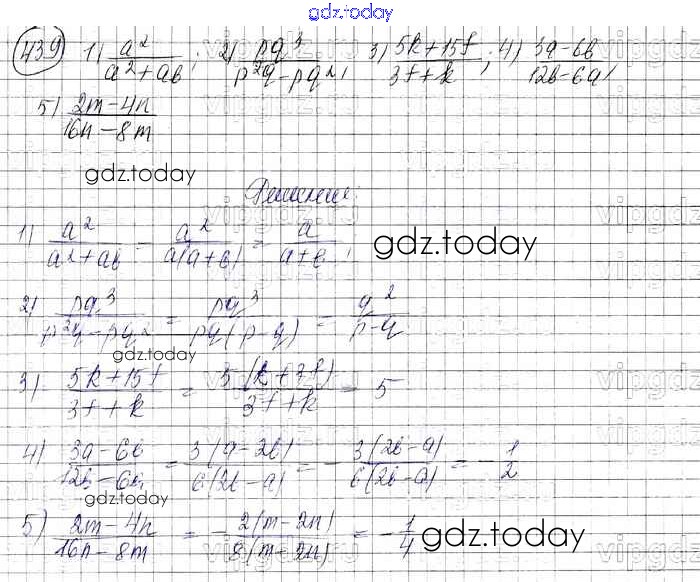 gdz.today
439 1) a²/(a²+ab); 2) pq³/(p²q−pq²); 3) (5k+15f)/(3f+k); 4) (3a−6b)/(12b−6a);
5) (2m−4n)/(16n−8m)
gdz.today
Решение:
1) a²/(a²+ab) = a²/(a(a+b)) = a/(a+b);
gdz.today
2) pq³/(p²q−pq²) = pq³/(pq(p−q)) = q²/(p−q)
gdz.today
3) (5k+15f)/(3f+k) = 5(k+3f)/(3f+k) = 5
4) (3a−6b)/(12b−6a) = 3(a−2b)/(6(2b−a)) = −3(2b−a)/(6(2b−a)) = −1/2
gdz.today
5) (2m−4n)/(16n−8m) = −2(m−2n)/(8(m−2n)) = −1/4
gdz.today